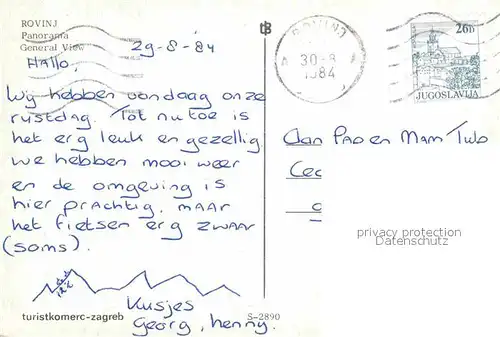 ROVINJ
Panorama
General View
29-8-84
Hallo,
Wij hebben vandaag onze
rustdag. Tot nu toe is
het erg leuk en gezellig.
We hebben mooi weer
en de omgeving is
hier prachtig, maar
het fietsen erg zwaar
(soms).
Kusjes
Georg, Henny.
turistkomerc-zagreb
S-2890
ROVINJ
30-8
1984
26D
JUGOSLAVIJA
Aan Pap en Mam/
privacy protection
Datenschutz